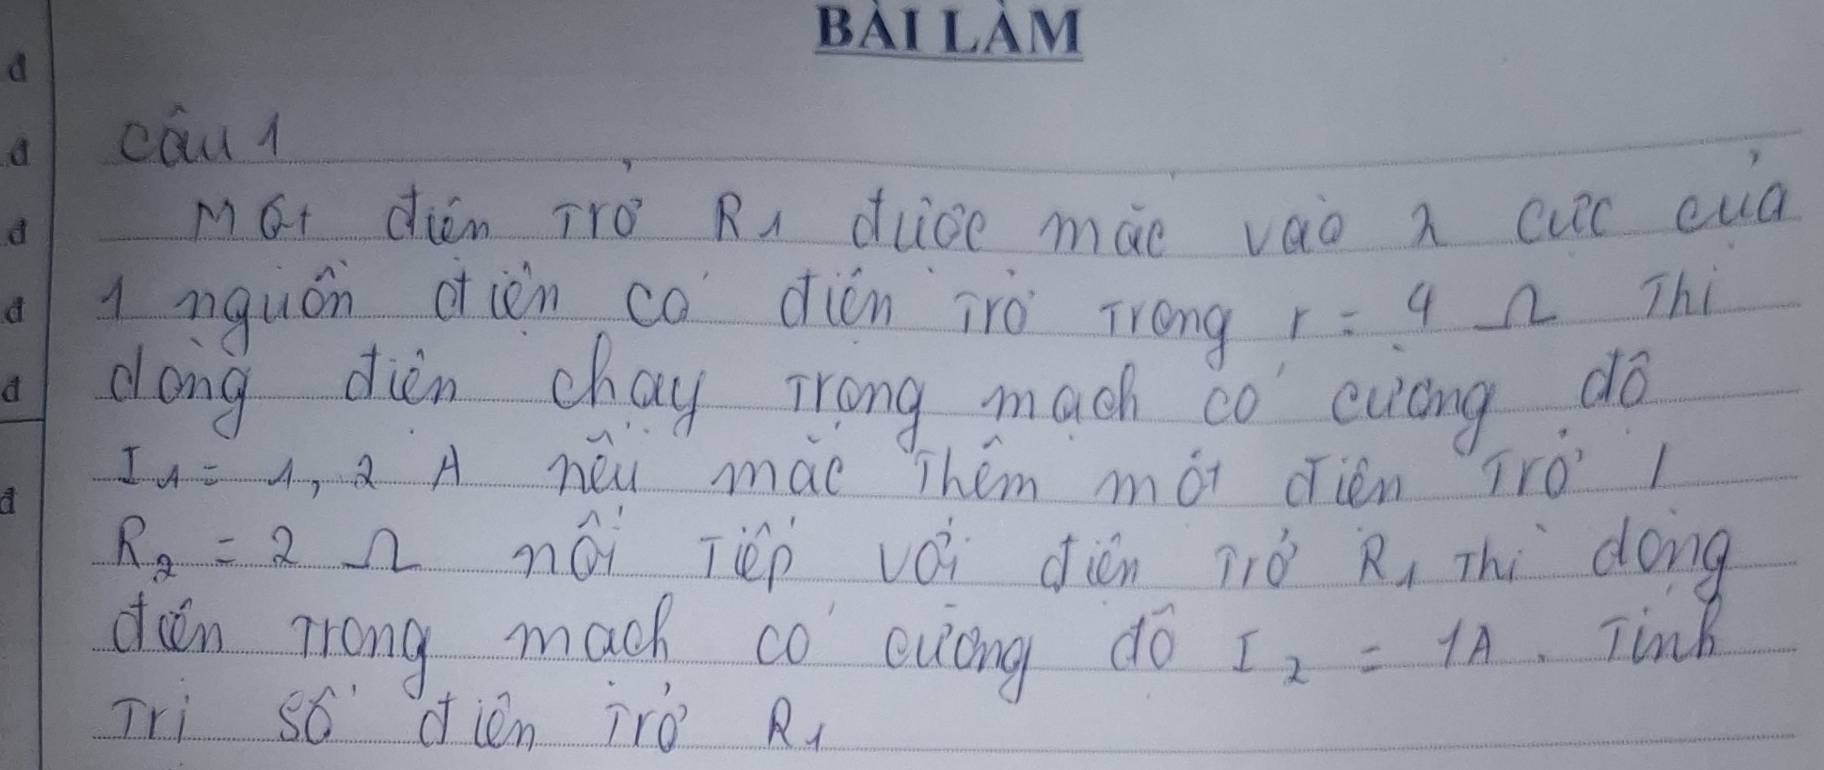 BÀI LÀM
câu 1
Một điện trở R1 được mắc vào 2 cực của
1 nguồn điện có điện trở trong r = 4 Ω thì
dòng điện chạy trong mạch có cường độ
I1 = 1,2 A nếu mắc thêm một điện trở
R2 = 2 Ω nối tiếp với điện trở R1 thì dòng
điện trong mạch có cường độ I2 = 1A. Tính
trị số điện trở R1